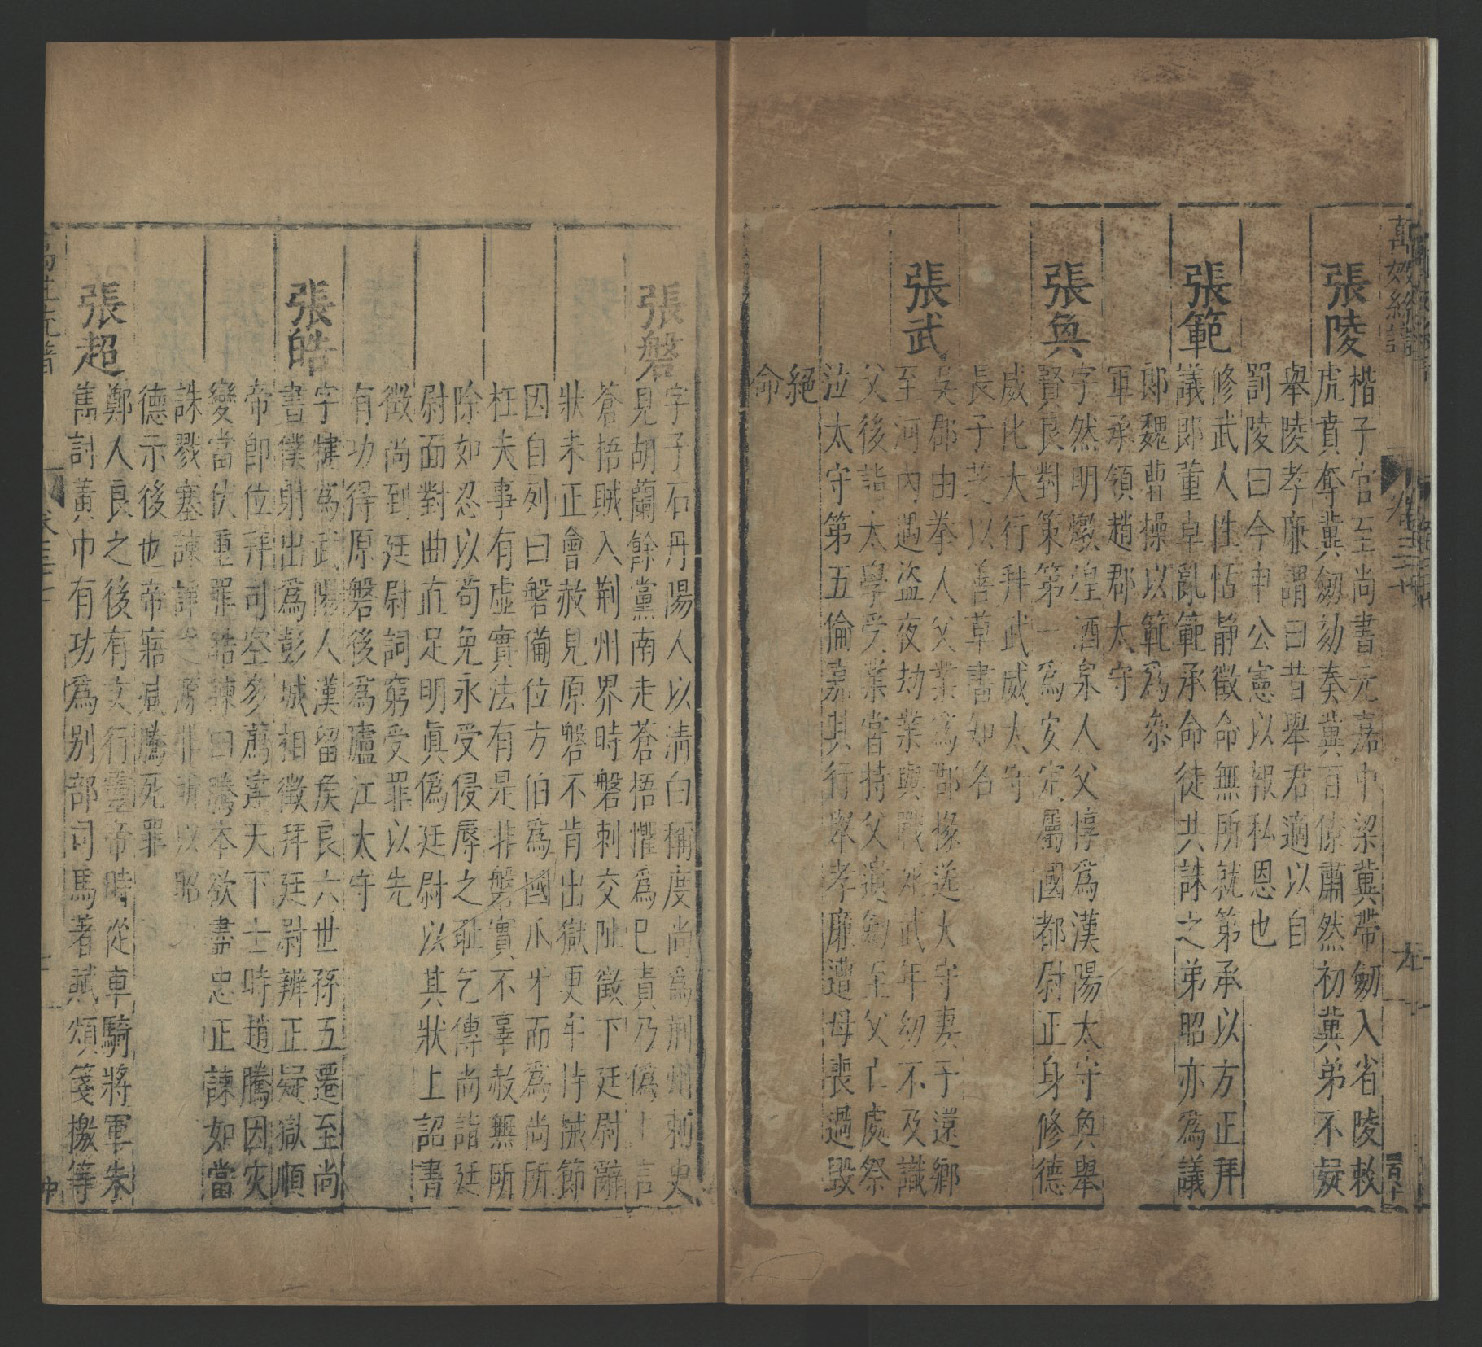 張陵
楷子官至尚書元嘉中梁冀帶劒入省陵敕
虎賁奪冀劒劾奏冀百僚肅然初冀弟不疑
舉陵孝廉謂曰昔舉君適以自
罰陵曰今申公憲以報私恩也
張範
修武人性恬静徵命無所就弟承以方正拜
議郎董卓亂範承命徒共誅之弟昭亦為議
郎魏曹操以範為叅
軍承領趙郡太守
張奐
字然明燉煌酒泉人父惇為漢陽太守奐舉
賢良對策第一為安定屬國都尉正身修德
威化大行拜武威太守
長子芝以善草書知名
張武
吳郡由拳人父業為郡掾送太守妻子還鄉
至河內遇盜夜劫業與戰死武年幼不及識
父後詣太學受業嘗持父遺劒至父亡處祭
泣太守第五倫嘉其行舉孝廉遭母喪過毀
絕
命
張磐
字子石丹陽人以清白稱度尚為荆州刺史
見胡蘭餘黨南走蒼梧懼為己責乃偽上言
蒼捂賊入荆州界時磐刺交阯徵下廷尉辭
狀未正會赦見原磐不肯出獄更牢持械節
因自列曰磐備位方伯為國爪牙而為尚所
枉夫事有虛實法有是非磐實不辜赦無所
除如忍以苟免永受侵辱之耻乞傳尚詣廷
尉面對曲直足明眞偽廷尉以其狀上詔書
徵尚到廷尉詞窮受罪以先
有功得原磐後為廬江太守
張皓
字犍為武陽人漢留矦良六世孫五遷至尚
書僕射出為彭城相徵拜廷尉辨正疑獄順
帝即位拜司空多薦達天下士時趙騰因灾
變當伏重罪皓諫曰騰本欲盡忠正諫如當
誅戮塞諫諍之源非所以昭
德示後也帝寤减騰死罪
張超
鄭人良之後有文行靈帝時從車騎將軍朱
雋討黃巾有功為別部司馬著賦頌箋檄等